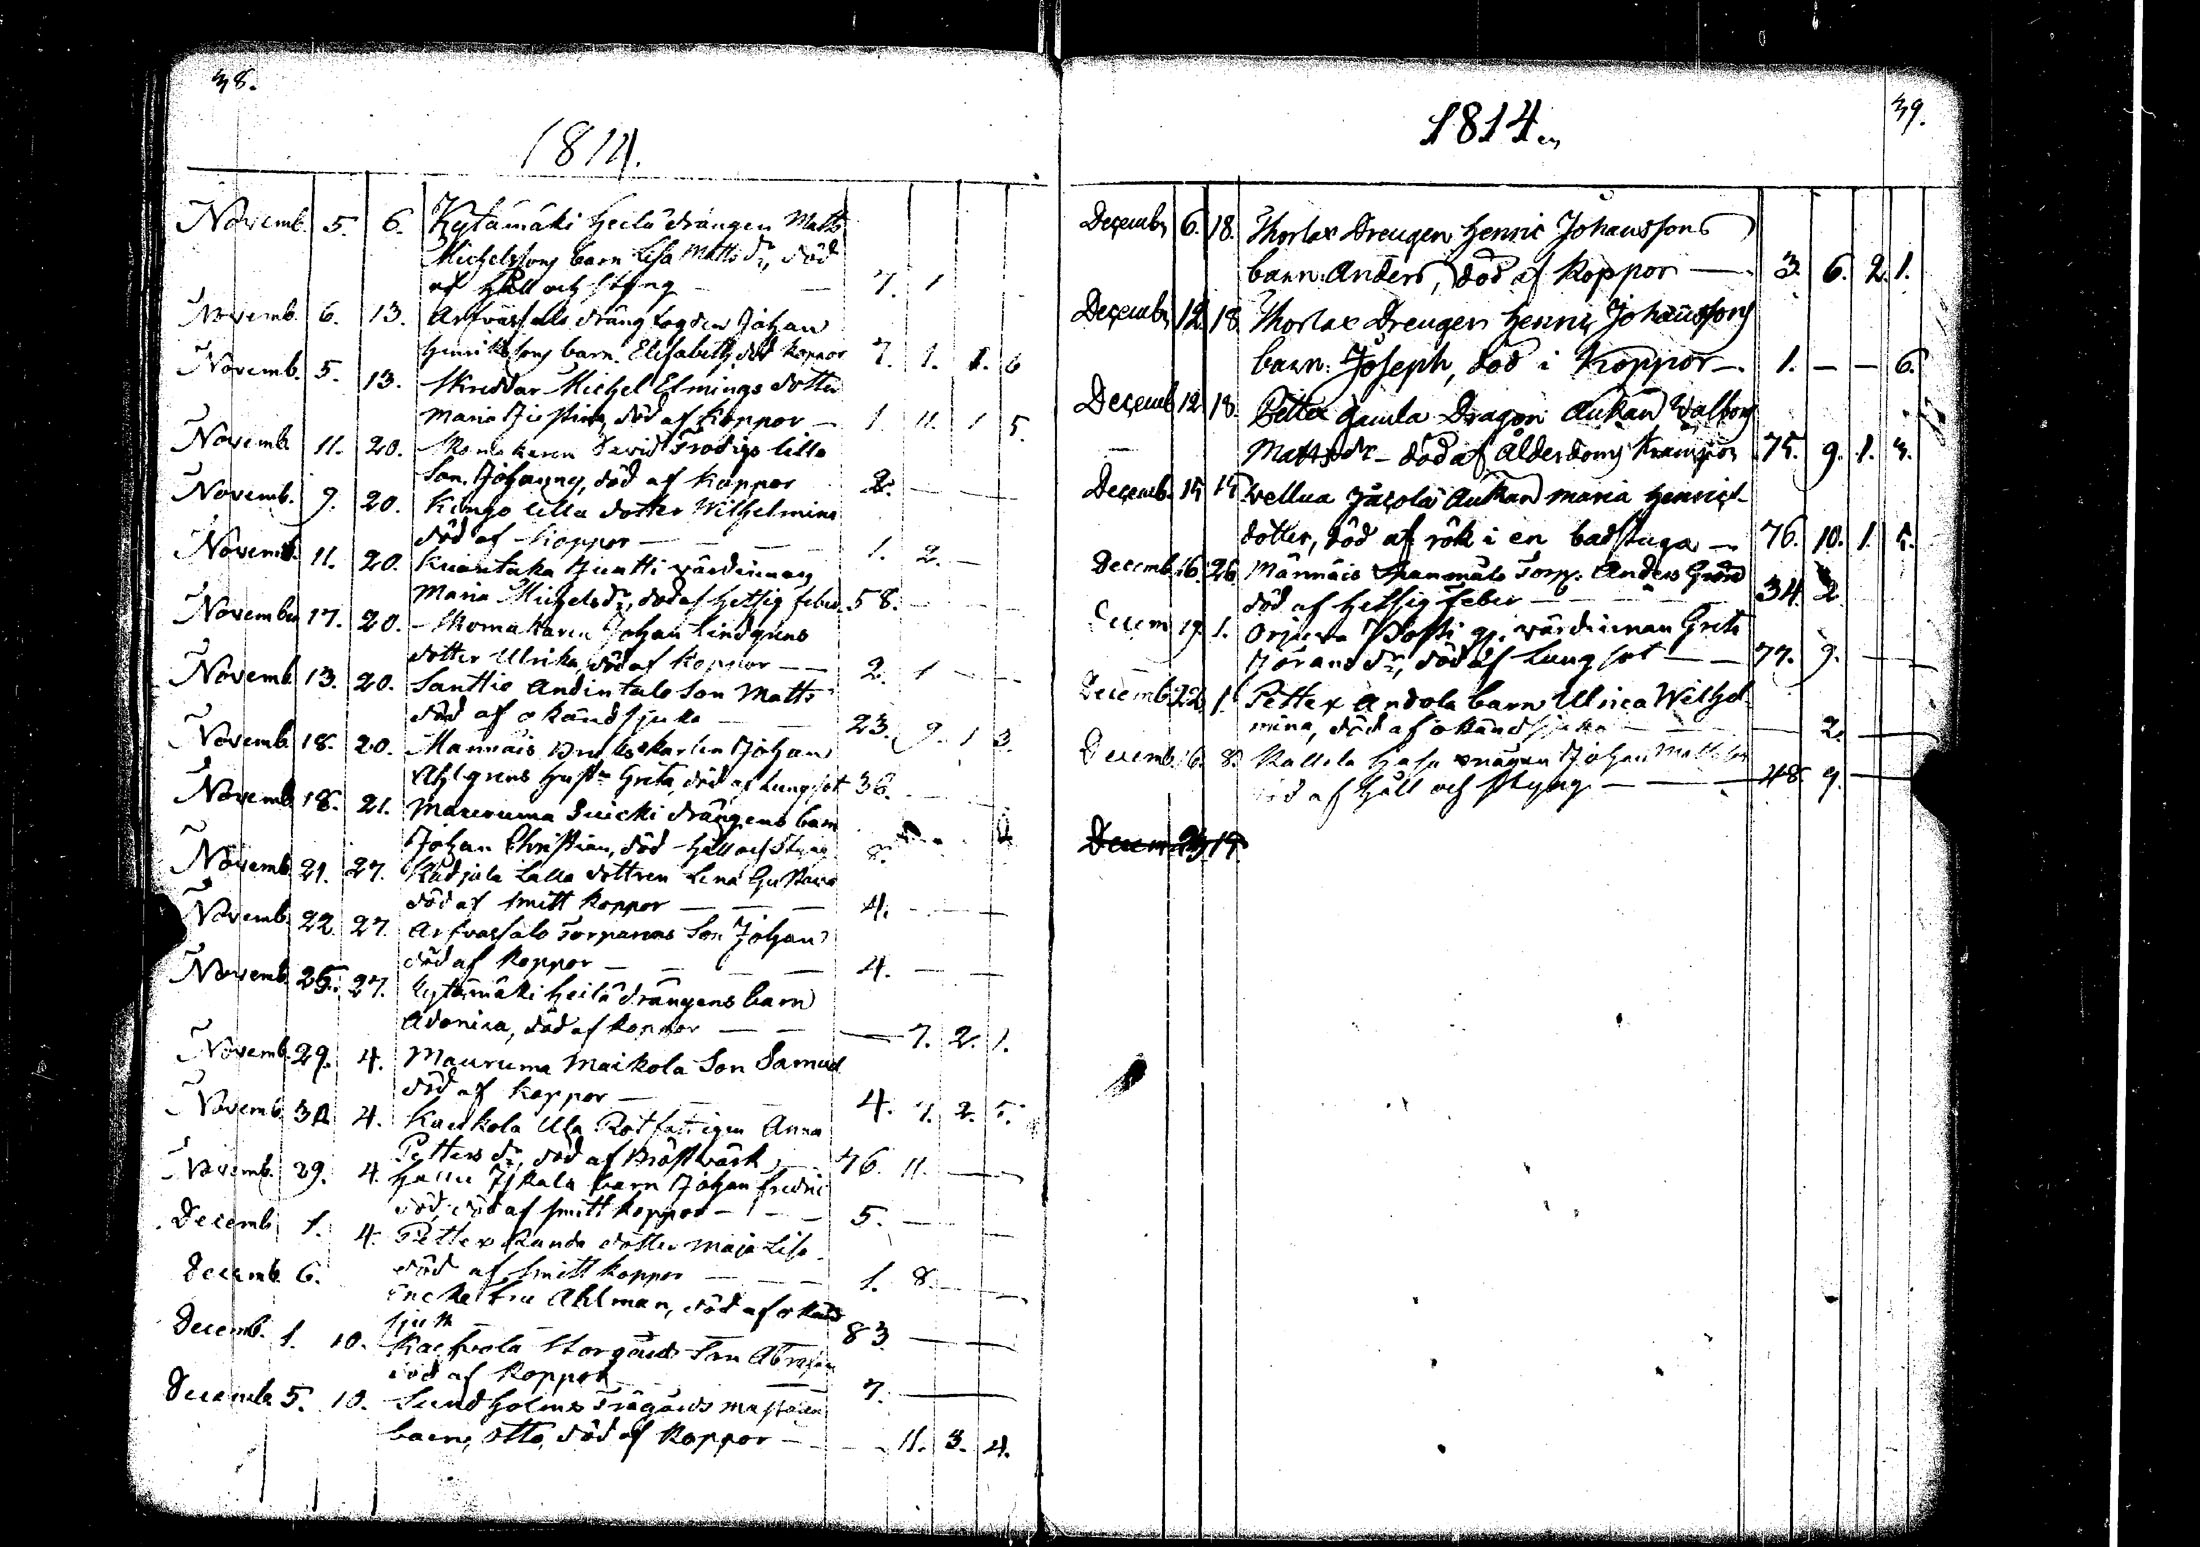 38.
1814.
Novemb. 5. 6. Kytämäki Heilä drängen Matts
Michelssons barn Lisa Matts dr, död
af Håll och styng — 7. 1
Novemb. 6. 13. Arfvassalo dräng Johan
Henrikssons barn Elisabeth, död koppor 7. 1. 1. 6
Novemb. 5. 13. Skreddar Michel Elmings dotter
Maria Justina, död af koppor — 1. 11. 1 5.
Novemb. 11. 20. Skomakaren David Frodigs lilla
Son Johanny, död af koppor 2. — —
Novemb. 9. 20. Kungo lilla dotter Wilhelmina
död af koppor — — — 1. 2. —
Novemb. 11. 20. Juntti värdinnan
Maria Michelsdr, död af hetsig feber 58. — —
Novemb. 17. 20. Skomakaren Johan Lindgrens
dotter Ulrika, död af koppor — — 2. 1 — —
Novemb. 13. 20. Santtio Andintalo Son Matts
död af okänd sjuka — — 23. 9. 1 3.
Novemb. 18. 20. Männäis Bruks karlen Johan
Ahlgrens Hustru Greta, död af Lungsot 36. — —
Novemb. 18. 21. Mauruma Suicki drängens barn
Johan Christian, död Håll och Styng 8.
Novemb. 21. 27. Kadjala Lilla dottren Lena Gustava
död af smitt koppor — — — 4. — —
Novemb. 22. 27. Arfvassalo Torparens Son Johan
död af koppor — — — 4. — —
Novemb. 25. 27. Kytämäki Heilä drängens barn
Adonica, död af koppor — — — 7. 2. 1.
Novemb. 29. 4. Mauruma Maikola Son Samuel
död af koppor — 4. 7. 2. 5.
Novemb. 30. 4. Kaukola Ula Rotfattigen Anna
Petters dr, död af Bröstvärk 76. 11. —
Novemb. 29. 4. barn Johan Fredric
död, död af smitt koppor — — 5. —
Decemb. 1. 4. Pettex Randa dotter Maja Lisa
död af smitt koppor — — 1. 8. —
Decemb. 6. Encke fru Ahlman, död af okänd
sjuk 83 —
Decemb. 1. 10. Kaervola Storgårds Son Abraham
död af koppor 7. —
Decemb. 5. 10. Sundholms Trägårds mästaren
barn, Otto, död af koppor — — 11. 3. 4.
39.
1814.
Decemb. 6. 18. Thorlax Drengen Henric Johanssons
barn Anders, död af koppor — 3. 6. 2. 1.
Decemb. 12. 18. Thorlax Drengen Henric Johanssons
barn Joseph, död i Koppor — 1. — — 6.
Decemb. 12. 18. Pettex gamla Dragon Änkan Valborg
Matts dr — död af Ålderdoms Krämpor 75. 9. 1. 4.
Decemb. 14 Wellua Jacola Änkan Maria Henrics
dotter, död af rök i en badstuga — 76. 10. 1. 5.
Decemb. 16. 26. Männäis Torp. Anders
död af hetsig feber — 34. 2
Decem 19. 1. värdinnan Greta
Jörans dr, död af Lungsot — — 77. 9. —
Decemb. 22. 1. Pettex Andola barn Ulrica Wilhel
mina, död af okänd sjuka — 2. —
Decemb. 16. 8. Kallela drängen Johan Mattsson
död af Håll och Styng — 48. 9. —
Decem